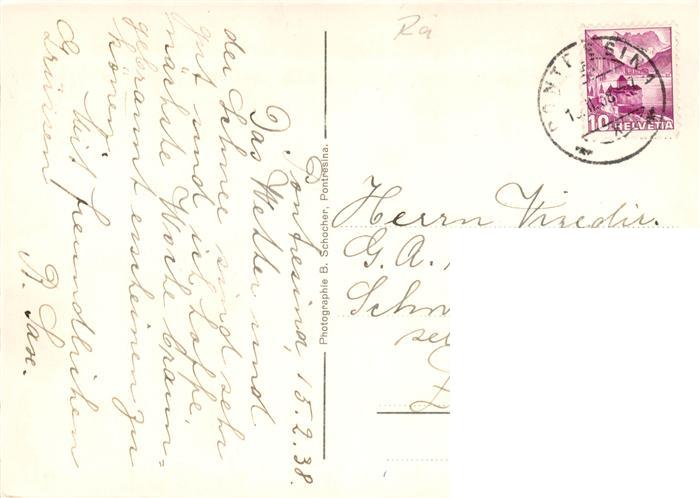 Pontresina, 15.2.38.
Das Wetter und
der Schnee sind sehr
gut und ich hoffe,
nächste Woche braun=
gebrannt erscheinen zu
können.
Mit freundlichen
Grüssen
R. Saxe.
Photographie B. Schocher, Pontresina.
PONTRESINA
10 HELVETIA
Herrn Vizedir.
G. A.
Schw